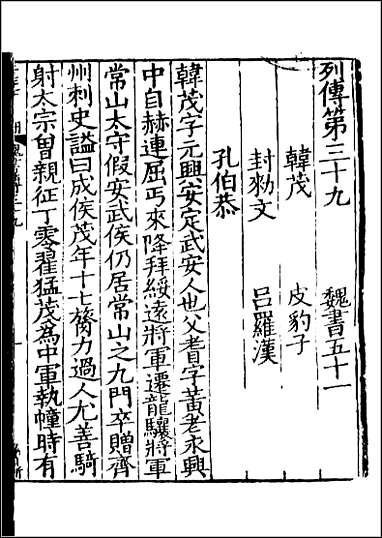 列傳第三十九　魏書五十一
韓茂　皮豹子
封勑文　呂羅漢
孔伯恭
韓茂字元興安定武安人也父耆字黃老永興
中自赫連屈丐來降拜綏遠將軍遷龍驤將軍
常山太守假安武侯仍居常山之九門卒贈涇
州刺史謚曰成侯茂年十七膂力過人尤善騎
射太宗曾親征丁零翟猛茂為中軍執幢時有